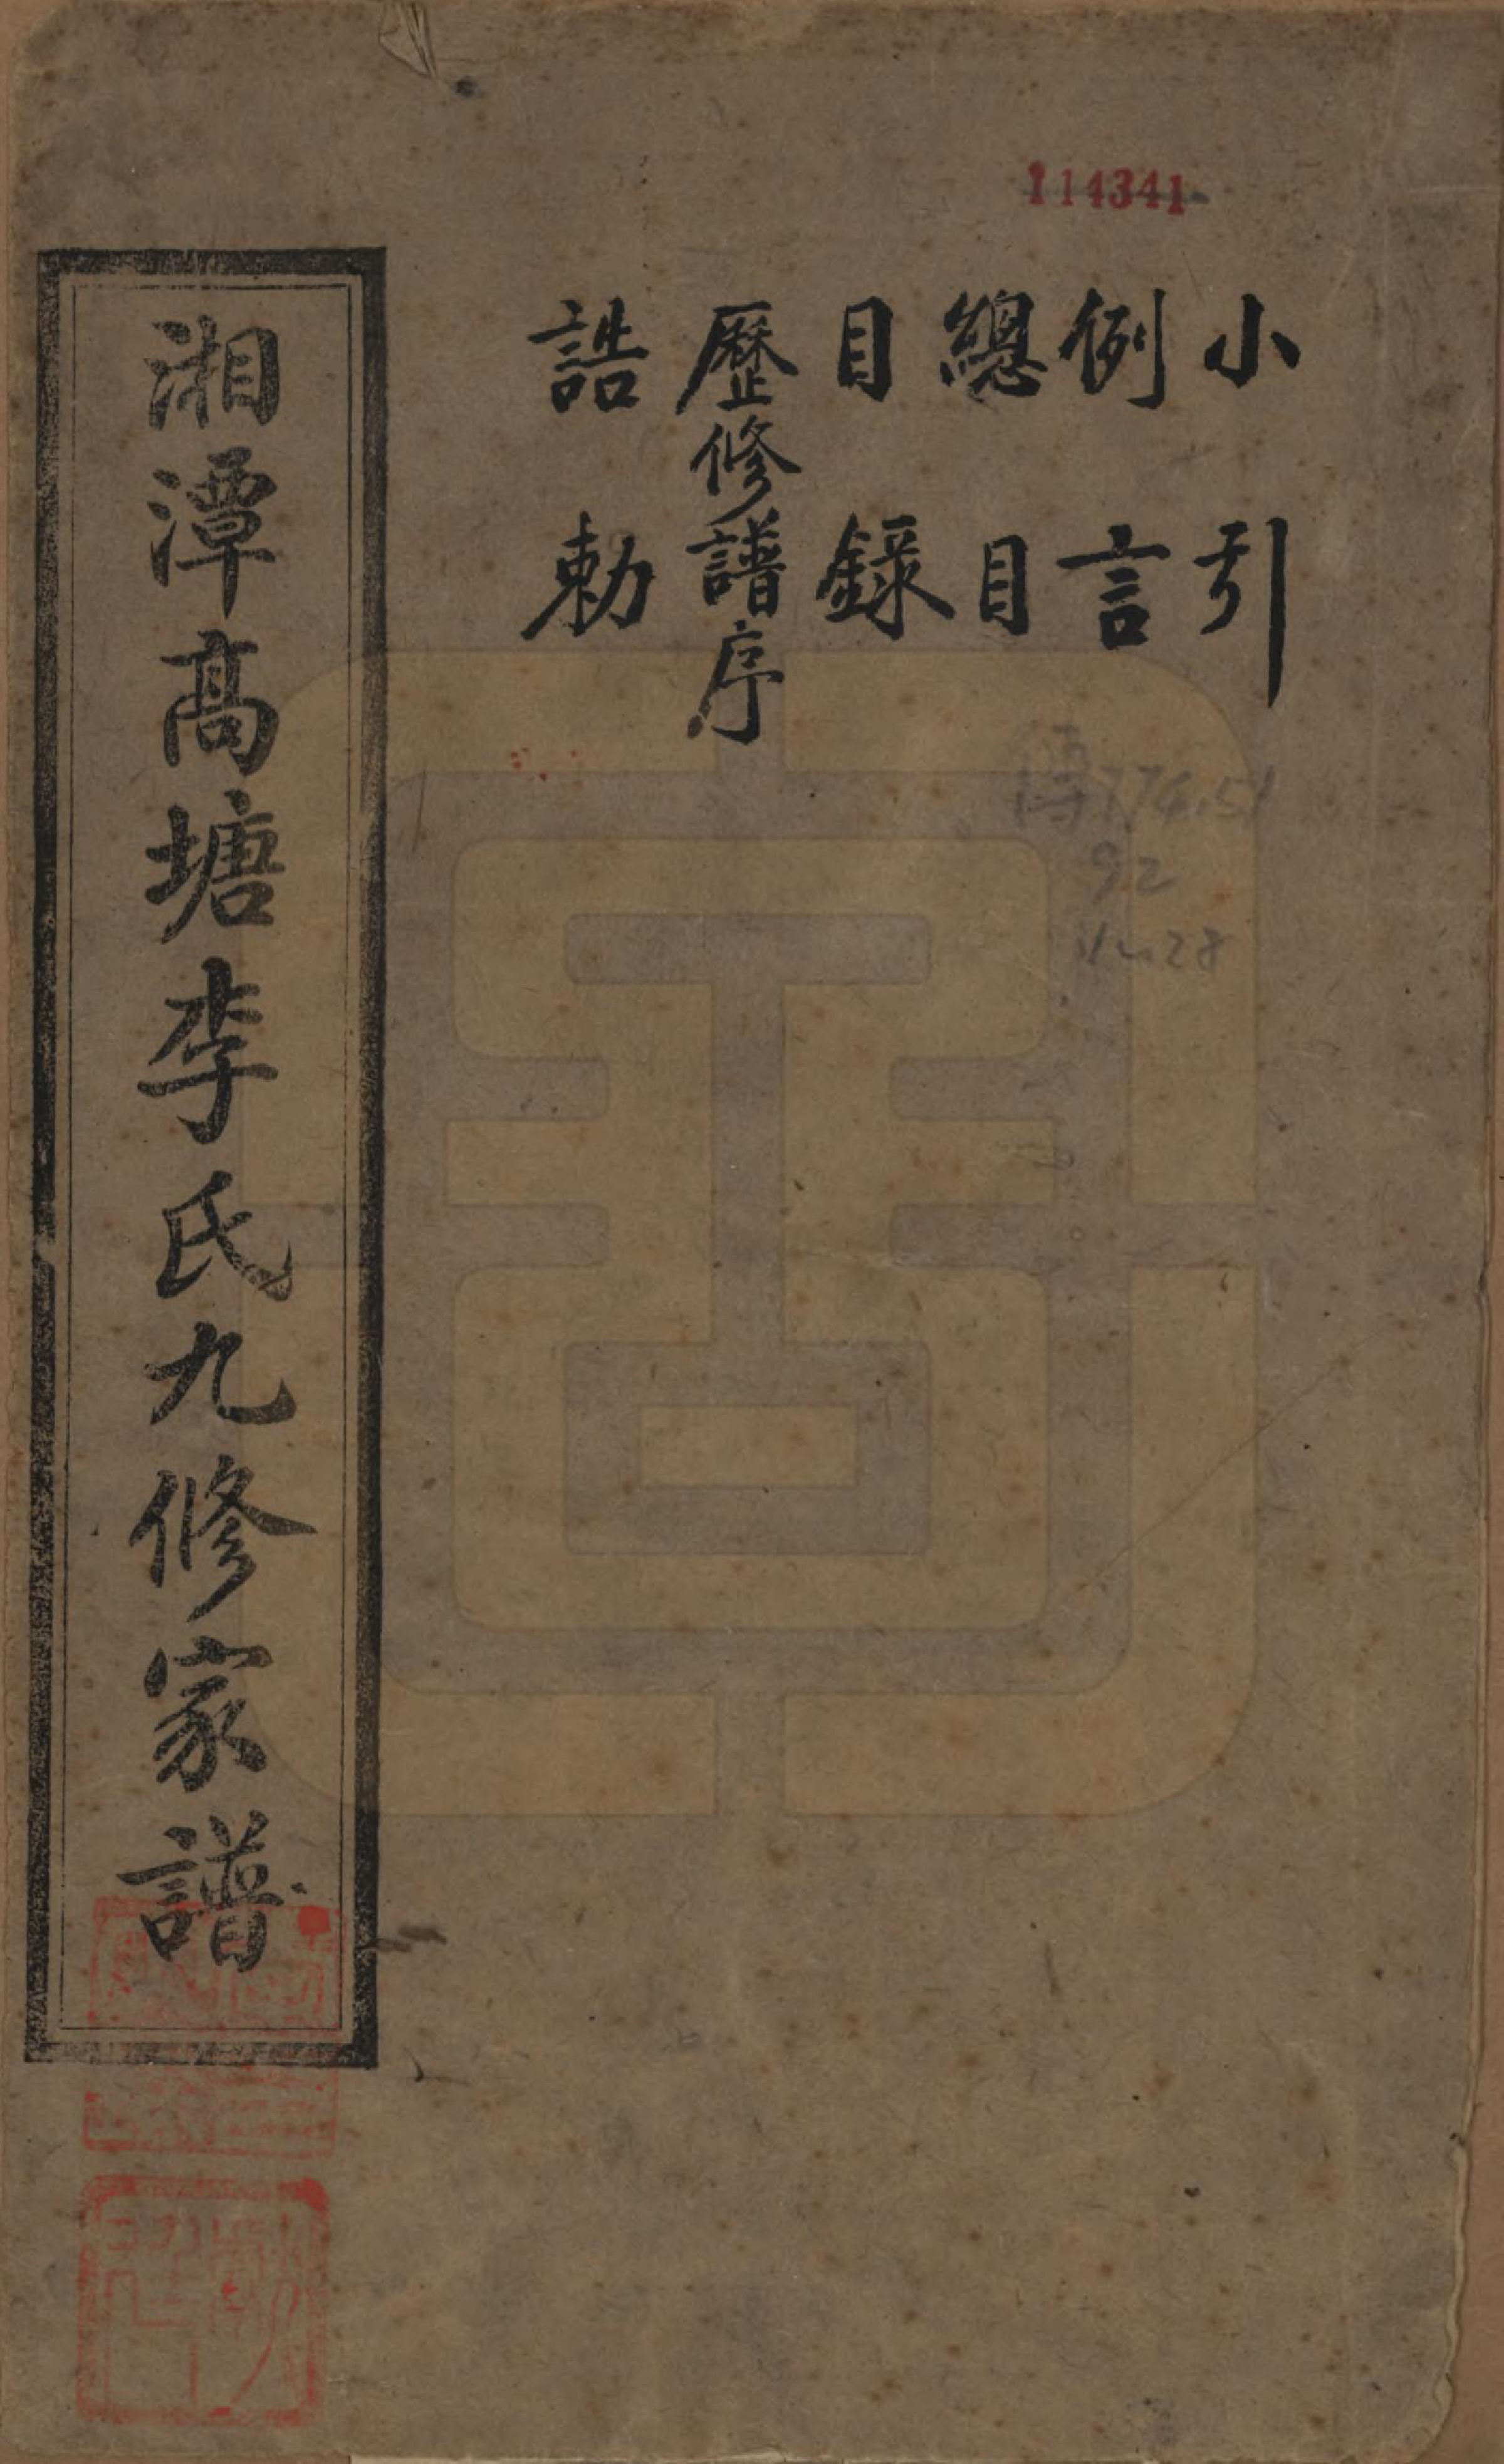 114341
小引
例言
總目
目錄
歷修譜序
誥勅
湘潭高塘李氏九修家譜
傳774.51
92